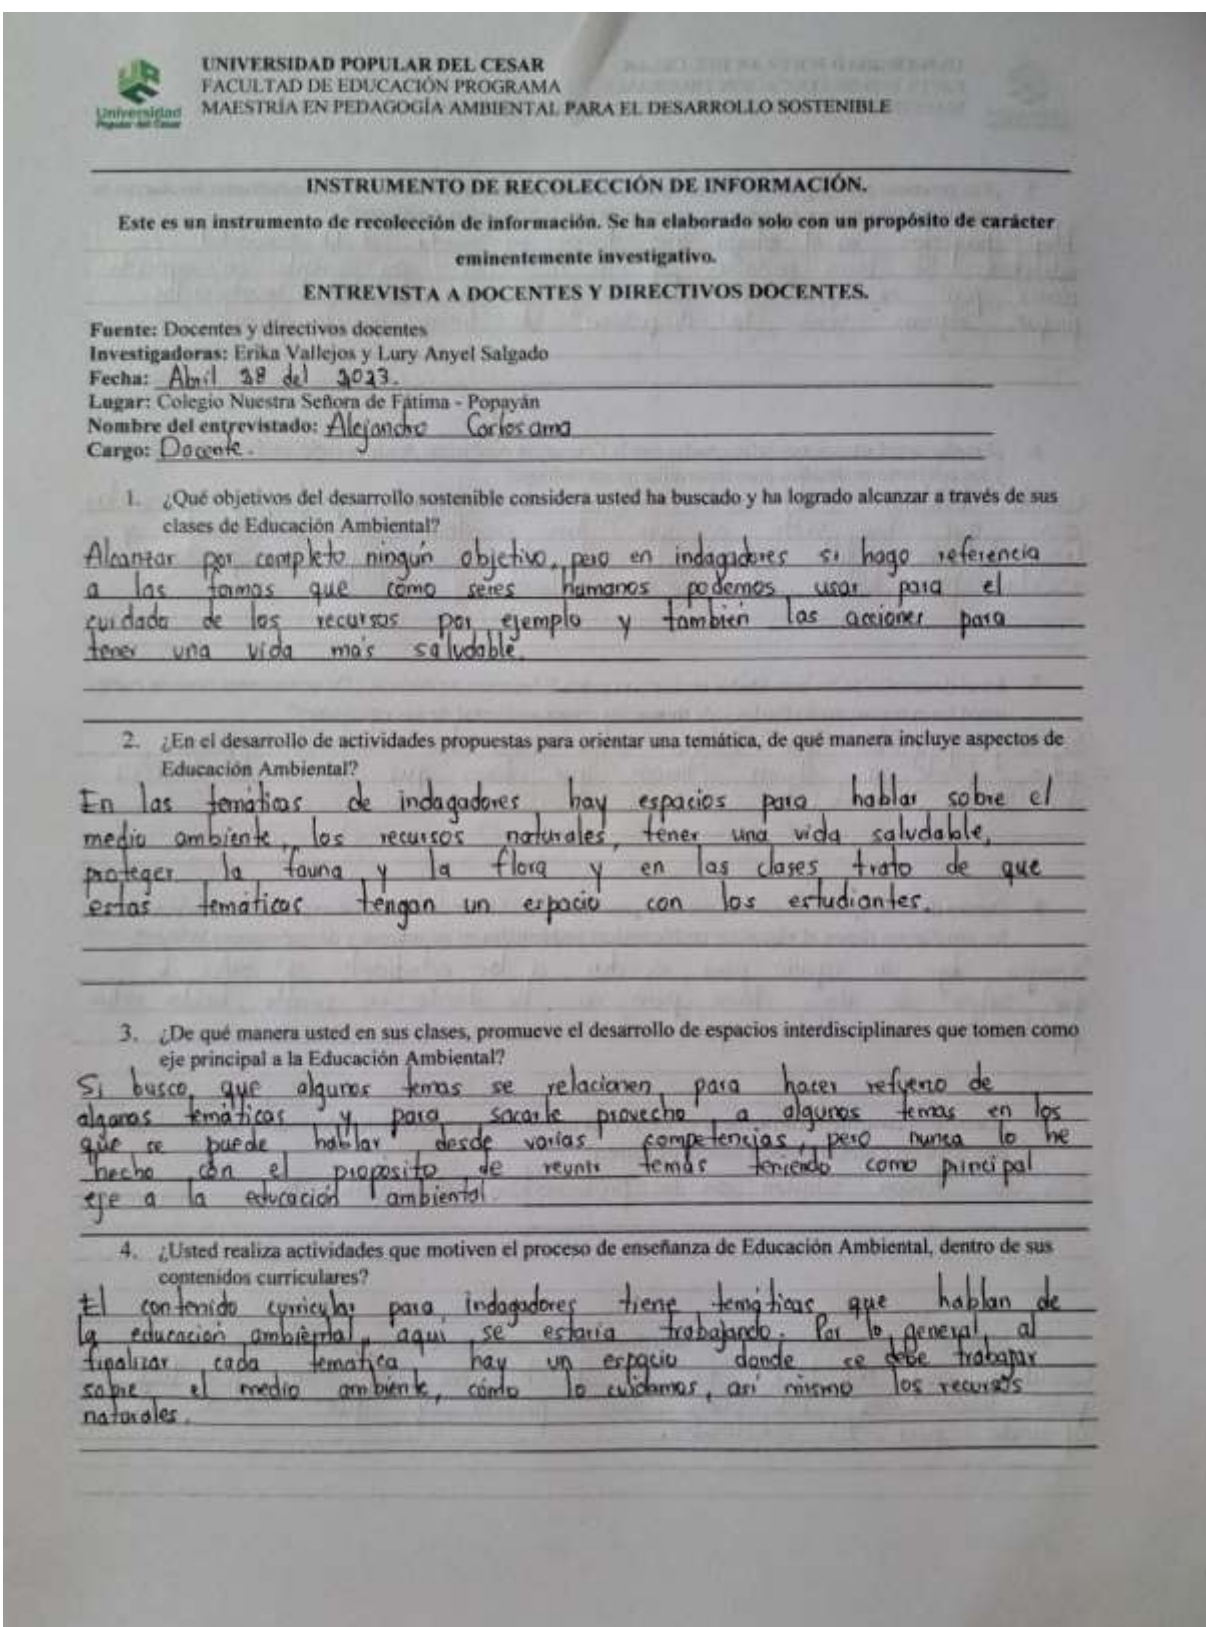 UNIVERSIDAD POPULAR DEL CESAR
FACULTAD DE EDUCACIÓN PROGRAMA
MAESTRÍA EN PEDAGOGÍA AMBIENTAL PARA EL DESARROLLO SOSTENIBLE
Universidad
Popular del Cesar
INSTRUMENTO DE RECOLECCIÓN DE INFORMACIÓN.
Este es un instrumento de recolección de información. Se ha elaborado solo con un propósito de carácter
eminentemente investigativo.
ENTREVISTA A DOCENTES Y DIRECTIVOS DOCENTES.
Fuente: Docentes y directivos docentes
Investigadoras: Erika Vallejos y Lury Anyel Salgado
Fecha: Abril 28 del 2023.
Lugar: Colegio Nuestra Señora de Fátima - Popayán
Nombre del entrevistado: Alejandro Carlosama
Cargo: Docente.
1. ¿Qué objetivos del desarrollo sostenible considera usted ha buscado y ha logrado alcanzar a través de sus
clases de Educación Ambiental?
Alcanzar por completo ningún objetivo, pero en indagadores si hago referencia
a las formas que cómo seres humanos podemos usar para el
cuidado de los recursos por ejemplo y también las acciones para
tener una vida más saludable.
2. ¿En el desarrollo de actividades propuestas para orientar una temática, de qué manera incluye aspectos de
Educación Ambiental?
En las temáticas de indagadores hay espacios para hablar sobre el
medio ambiente, los recursos naturales, tener una vida saludable,
proteger la fauna y la flora y en las clases trato de que
estas temáticas tengan un espacio con los estudiantes.
3. ¿De qué manera usted en sus clases, promueve el desarrollo de espacios interdisciplinares que tomen como
eje principal a la Educación Ambiental?
Si busco que algunos temas se relacionen para hacer refuerzo de
algunas temáticas y para sacarle provecho a algunos temas en los
que se puede hablar desde varias competencias, pero nunca lo he
hecho con el proposito de reunir temas teniendo como principal
eje a la educación ambiental.
4. ¿Usted realiza actividades que motiven el proceso de enseñanza de Educación Ambiental, dentro de sus
contenidos curriculares?
El contenido curricular para indagadores tiene temáticas que hablan de
la educación ambiental, aquí se estaría trabajando. Por lo general, al
finalizar cada temática, hay un espacio donde se debe trabajar
sobre el medio ambiente, cómo lo cuidamos, así mismo los recursos
naturales.